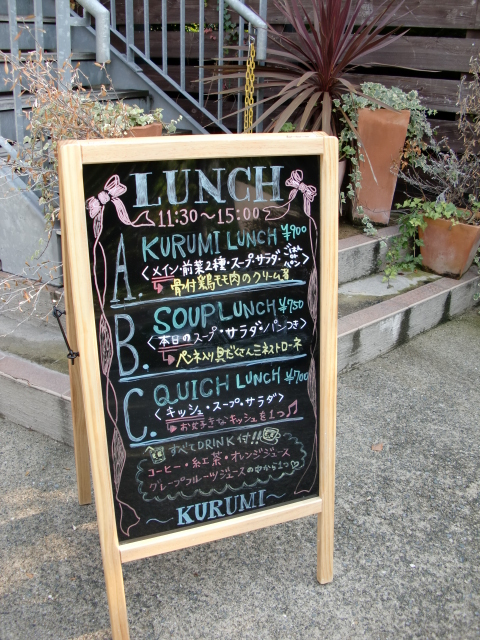 LUNCH
11:30〜15:00
A. KURUMI LUNCH ¥900
〈メイン・前菜2種・スープ・サラダ・ごはんorパン〉
骨付鶏モモ肉のクリーム煮
B. SOUP LUNCH ¥750
〈本日のスープ・サラダ・パンつき〉
ペンネ入り具だくさんミネストローネ
C. QUICH LUNCH ¥700
〈キッシュ・スープ・サラダ〉
お好きなキッシュを1つ♪
すべてDRINK付!!
コーヒー・紅茶・オレンジジュース
グレープフルーツジュースの中から1つ♡
〜KURUMI〜